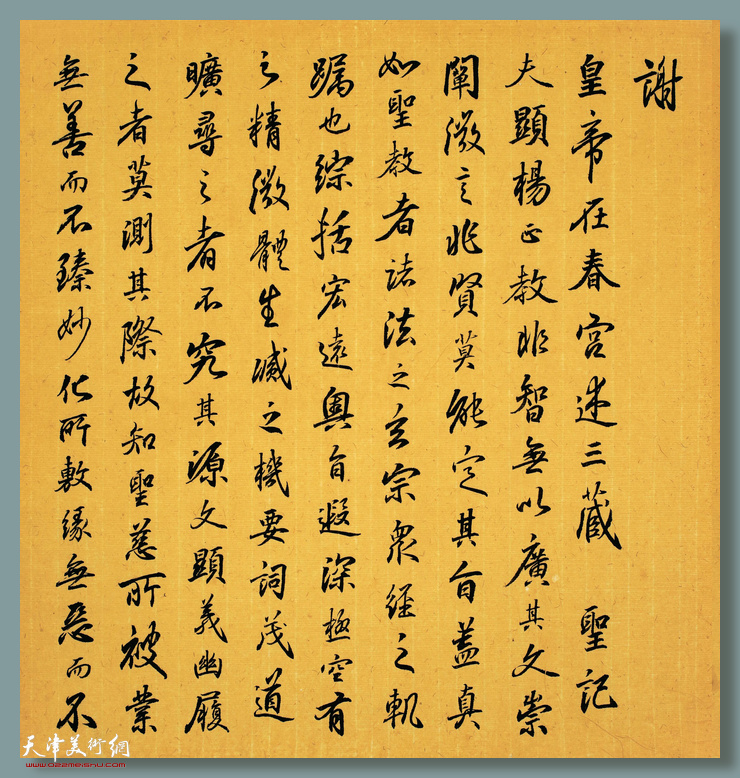 謝
皇帝在春宮述三藏　聖記
夫顯楊正教非智無以廣其文崇
闡微言非賢莫能定其旨蓋真
如聖教者諸法之玄宗眾經之軌
躅也綜括宏遠奧旨遐深極空有
之精微體生滅之機要詞茂道
曠尋之者不究其源文顯義幽履
之者莫測其際故知聖慈所被業
無善而不臻妙化所敷緣無惡而不
天津美術網
www.022meishu.com